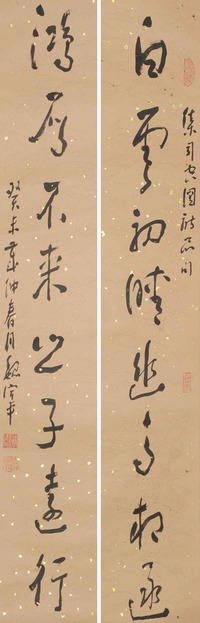 集司空圖詩品句
白雲初晴幽鳥相逐
鴻雁不来之子遠行
癸未歲仲春月魏宇平